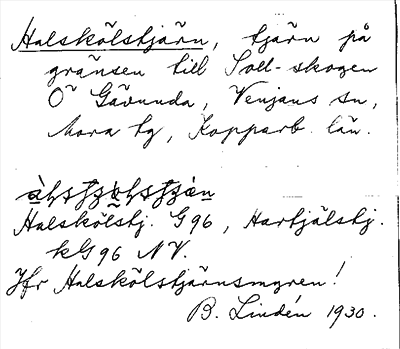 Halskölstjärn, tjärn på
gränsen till Soll-skogen
O Gävunda, Venjans sn,
Mora tg, Kopparb. län.
Halskölstj. G96, Hartjälstj.
kG96 NV.
Jfr Halskölstjärnsmyren!
B. Lindén 1930.